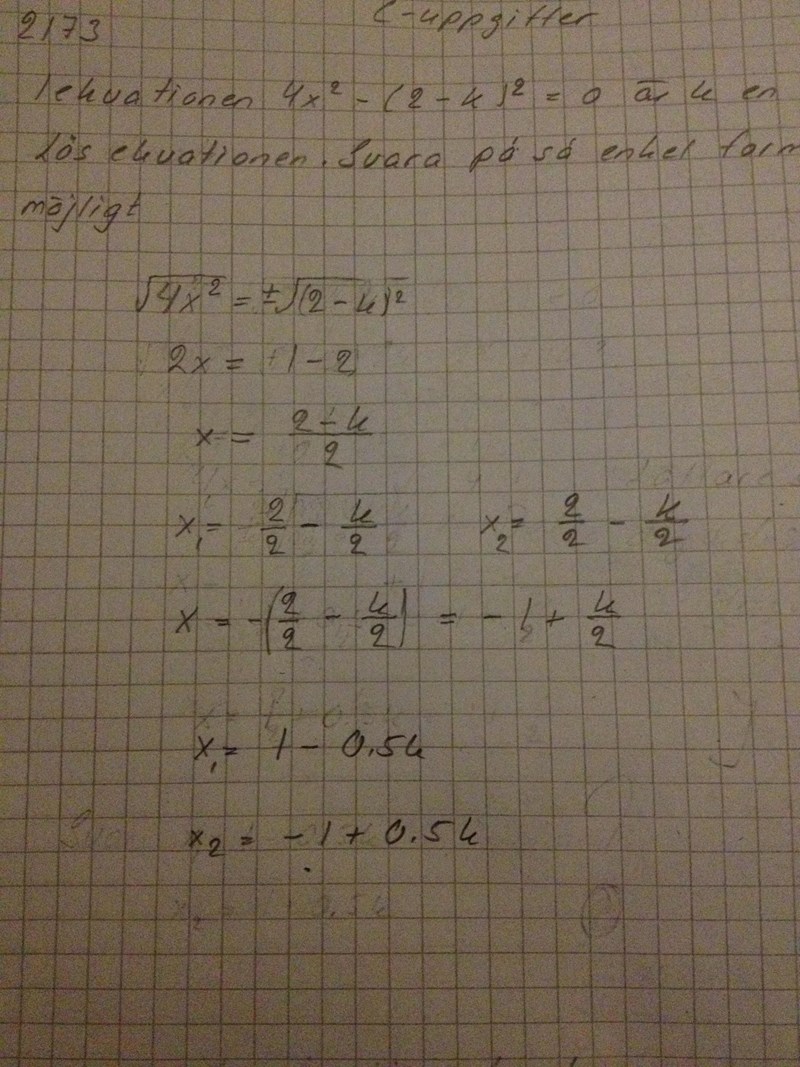 2173 C-uppgifter
I ekvationen 4x² - (2 - k)² = 0 är k en
Lös ekvationen. Svara på så enkel form
möjligt
√4x² = ±√(2 - k)²
2x = +1 - 2
x = (2 - k)/2
x₁ = 2/2 - k/2 x₂ = 2/2 - k/2
x = -(2/2 - k/2) = -1 + k/2
x₁ = 1 - 0.5k
x₂ = -1 + 0.5k